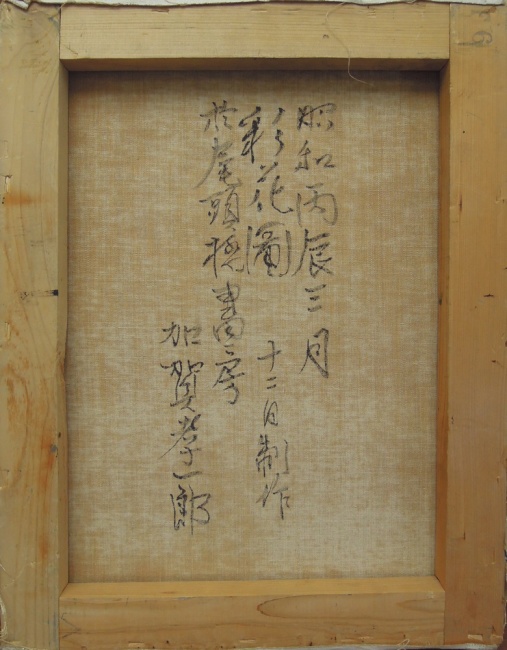 昭和丙辰三月
十二日制作
彩花圖
於尾頭橋畫房
加賀孝一郎